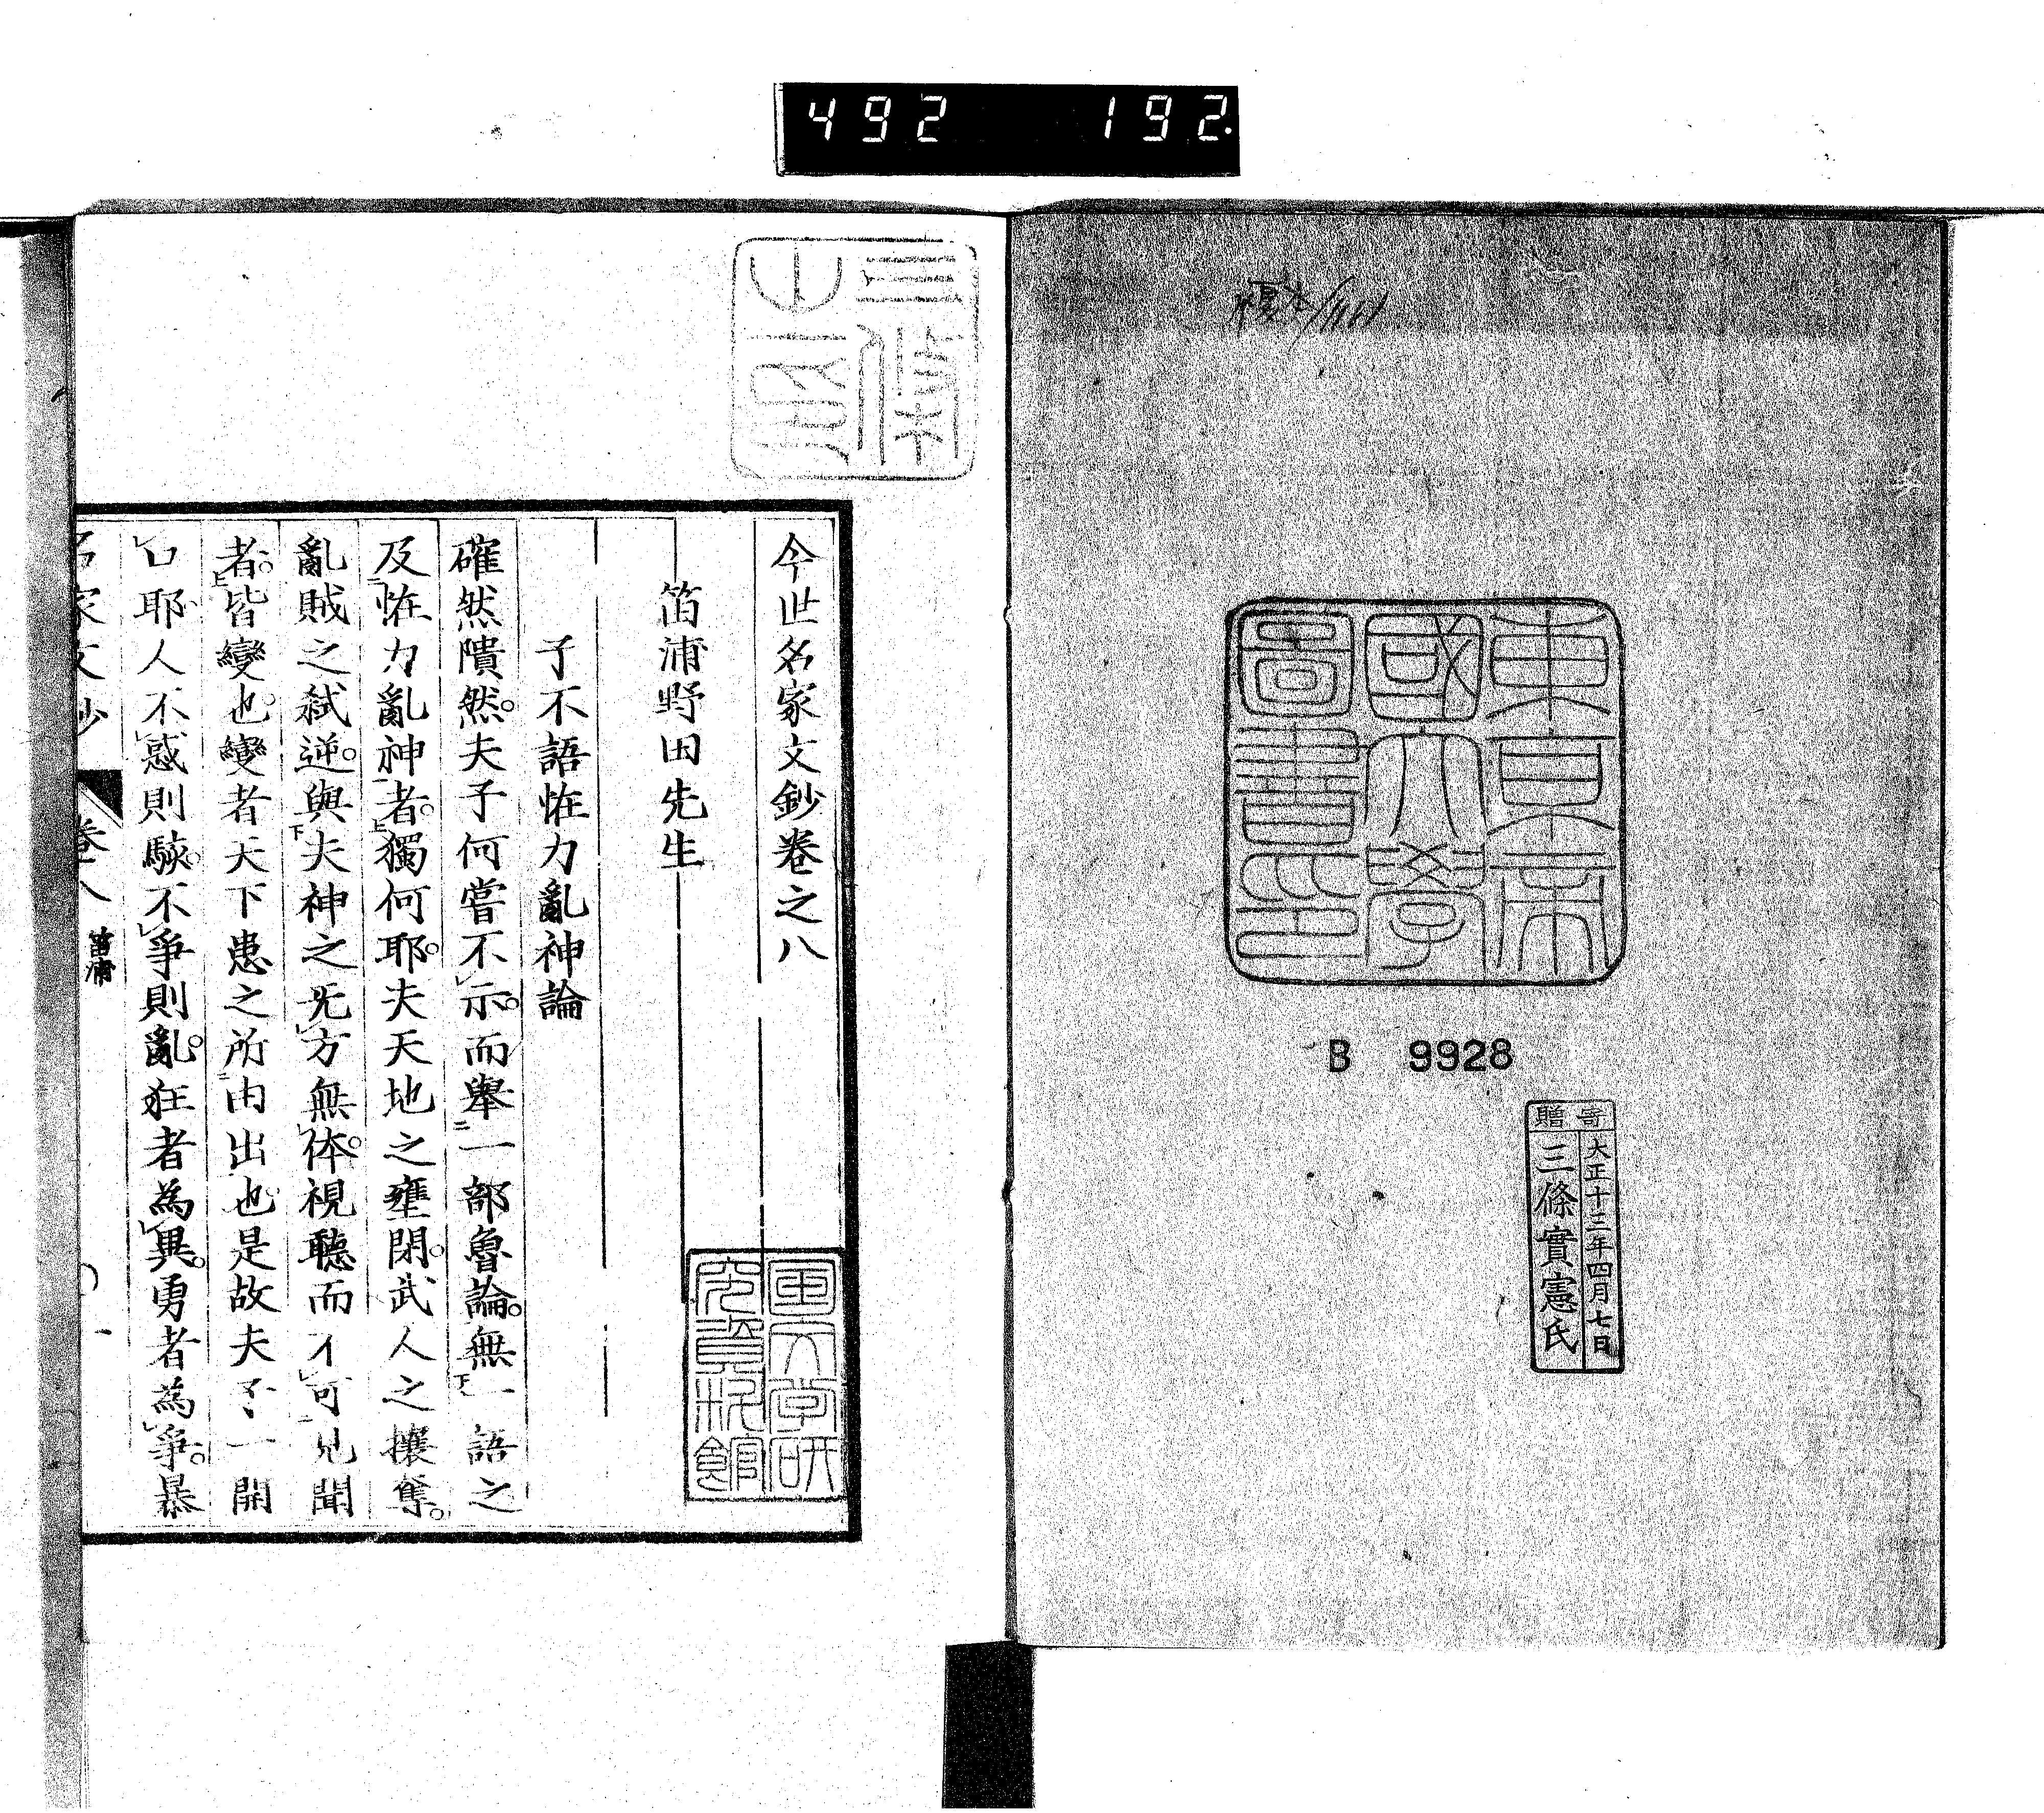 492 192.
東京帝
國大學
圖書印
B 9928
寄贈
大正十三年四月七日
三條實憲氏
三條
今世名家文鈔卷之八
笛浦野田先生
子不語恠力亂神論
確然隤然。夫子何嘗不示。而舉二一部魯論。無下一語之
及二恠力亂神一者上。獨何耶。夫天地之壅閉。武人之攘奪。
亂賊之弑逆。與下夫神之无方無体。視聽而不可見聞
者上。皆變也。變者天下患之所二由出一也。是故夫子一開
口耶人不惑則駭。不爭則亂。狂者為異。勇者為爭。暴
名家文鈔
卷八
笛浦
一
國文学研
究資料館